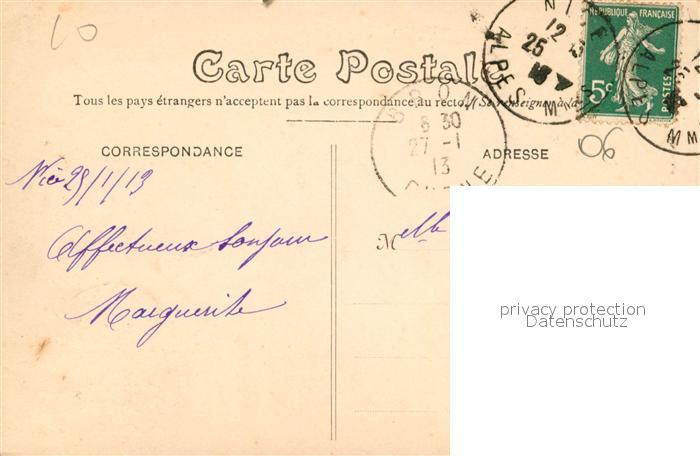 10
NICE
12
25
ALPES M
REPUBLIQUE FRANÇAISE
5c
POSTES
Carte Postale
Tous les pays étrangers n'acceptent pas la correspondance au recto. (Se renseigner à la
8 30
27 -1
13
06
CORRESPONDANCE
ADRESSE
Nice 25/1/13
Affectueux bonjour
Marguerite
Melle
privacy protection
Datenschutz